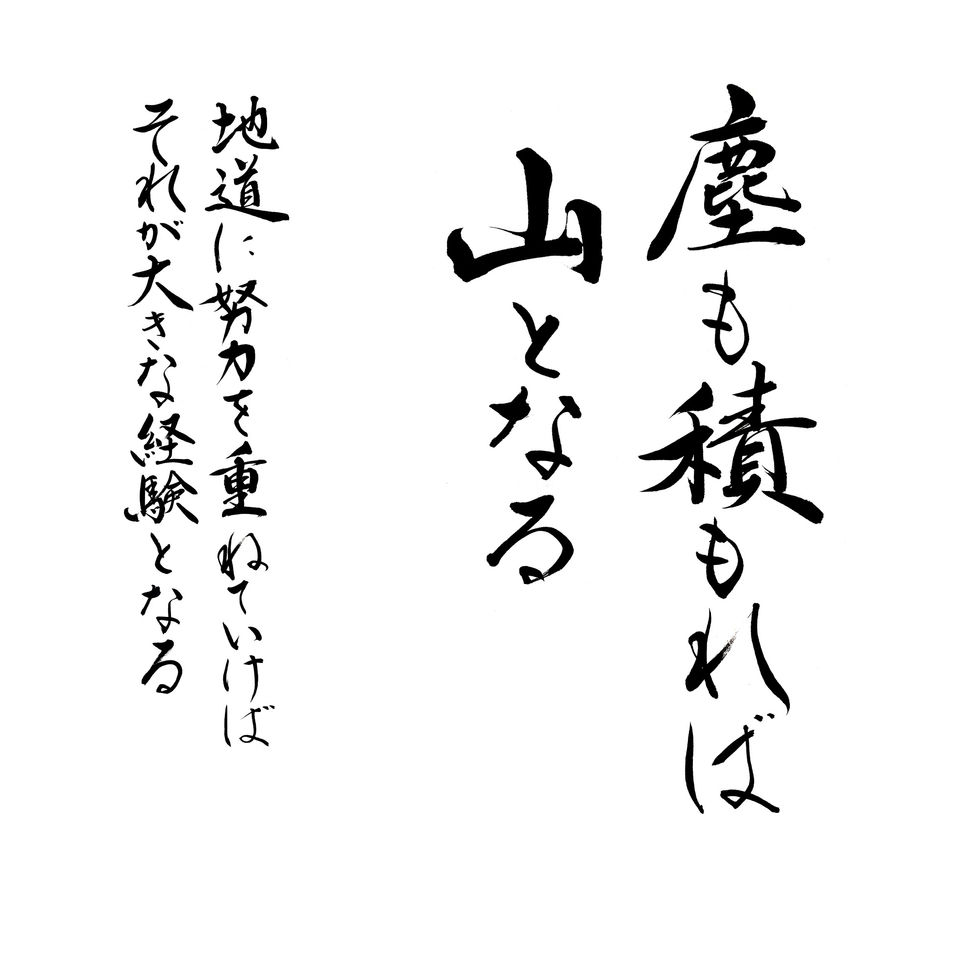 塵も積もれば
山となる
地道に努力を重ねていけば
それが大きな経験となる